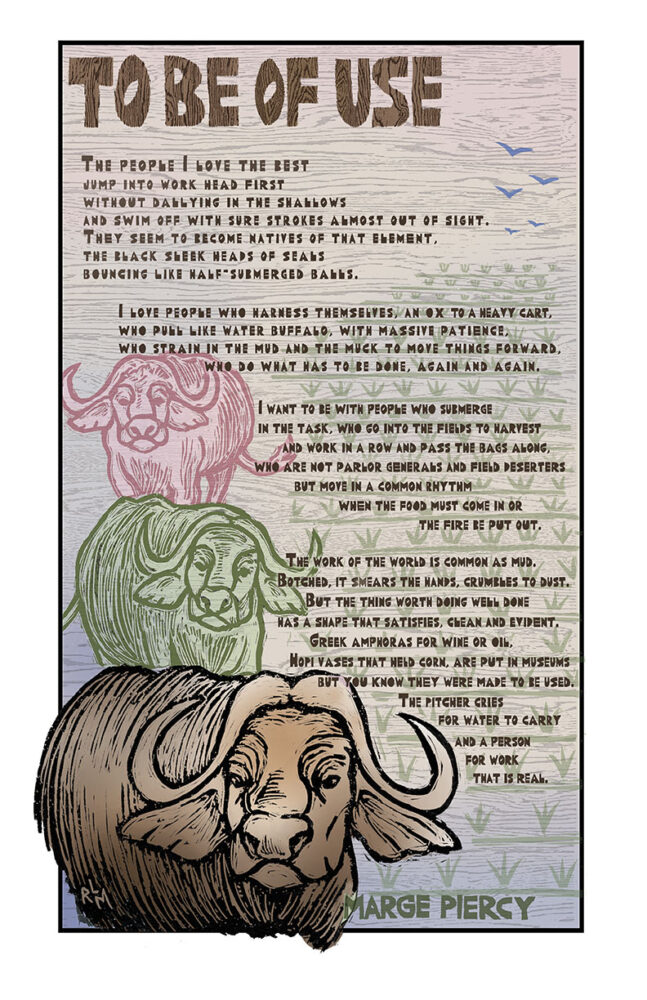 TO BE OF USE
THE PEOPLE I LOVE THE BEST
JUMP INTO WORK HEAD FIRST
WITHOUT DALLYING IN THE SHALLOWS
AND SWIM OFF WITH SURE STROKES ALMOST OUT OF SIGHT.
THEY SEEM TO BECOME NATIVES OF THAT ELEMENT,
THE BLACK SLEEK HEADS OF SEALS
BOUNCING LIKE HALF-SUBMERGED BALLS.
I LOVE PEOPLE WHO HARNESS THEMSELVES, AN OX TO A HEAVY CART,
WHO PULL LIKE WATER BUFFALO, WITH MASSIVE PATIENCE,
WHO STRAIN IN THE MUD AND THE MUCK TO MOVE THINGS FORWARD,
WHO DO WHAT HAS TO BE DONE, AGAIN AND AGAIN.
I WANT TO BE WITH PEOPLE WHO SUBMERGE
IN THE TASK, WHO GO INTO THE FIELDS TO HARVEST
AND WORK IN A ROW AND PASS THE BAGS ALONG,
WHO ARE NOT PARLOR GENERALS AND FIELD DESERTERS
BUT MOVE IN A COMMON RHYTHM
WHEN THE FOOD MUST COME IN OR
THE FIRE BE PUT OUT.
THE WORK OF THE WORLD IS COMMON AS MUD.
BOTCHED, IT SMEARS THE HANDS, CRUMBLES TO DUST.
BUT THE THING WORTH DOING WELL DONE
HAS A SHAPE THAT SATISFIES, CLEAN AND EVIDENT.
GREEK AMPHORAS FOR WINE OR OIL,
HOPI VASES THAT HELD CORN, ARE PUT IN MUSEUMS
BUT YOU KNOW THEY WERE MADE TO BE USED.
THE PITCHER CRIES
FOR WATER TO CARRY
AND A PERSON
FOR WORK
THAT IS REAL.
R-M
MARGE PIERCY